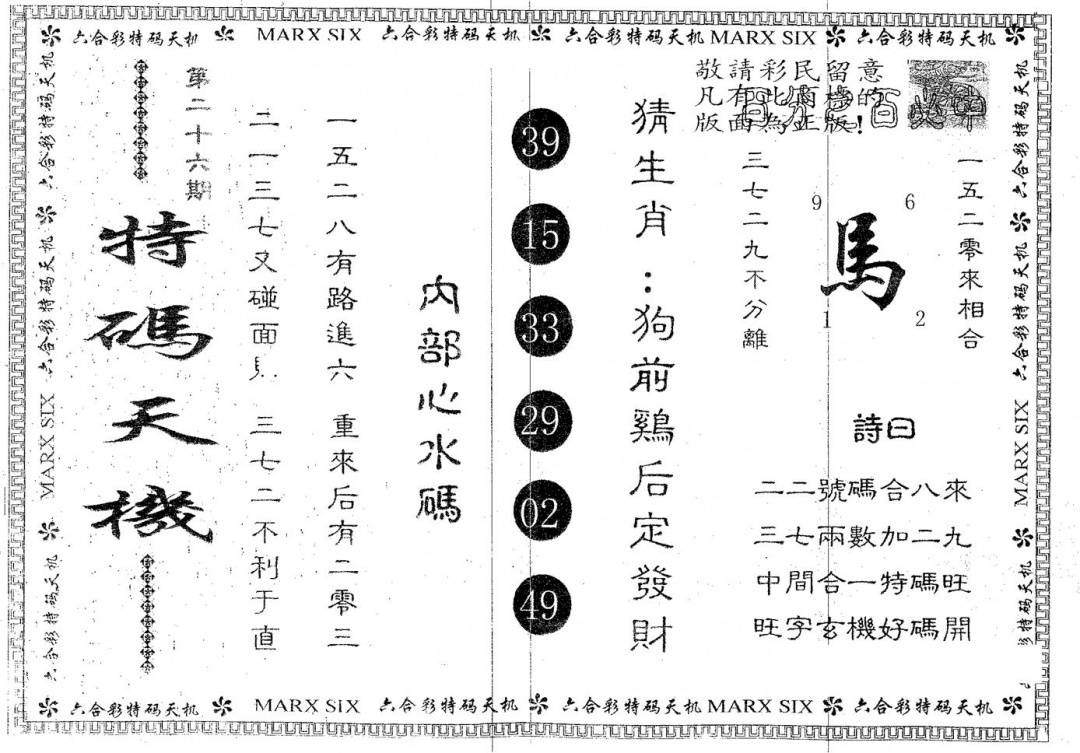 六合彩特码天机 MARX SIX 六合彩特码天机 六合彩特码天机 MARX SIX 六合彩特码天机
敬請彩民留意
凡有此商標的
版面為正版!
一五二零來相合
馬
9 6
1 2
三七二九不分離
詩曰
二二號碼合八來
三七兩數加二九
中間合一特碼旺
旺字玄機好碼開
猜生肖:狗前鷄后定發財
39
15
33
29
02
49
內部心水碼
一五二八有路進六 重來后有二零三
二一三七又碰面 三七二不利于直
第二十六期
特碼天機
六合彩特码天机 MARX SIX 六合彩特码天机 六合彩特码天机
六合彩特码天机 六合彩特码天机 MARX SIX 彩特码天机
六合彩特码天机 MARX SIX 六合彩特码天机 六合彩特码天机 MARX SIX 六合彩特码天机